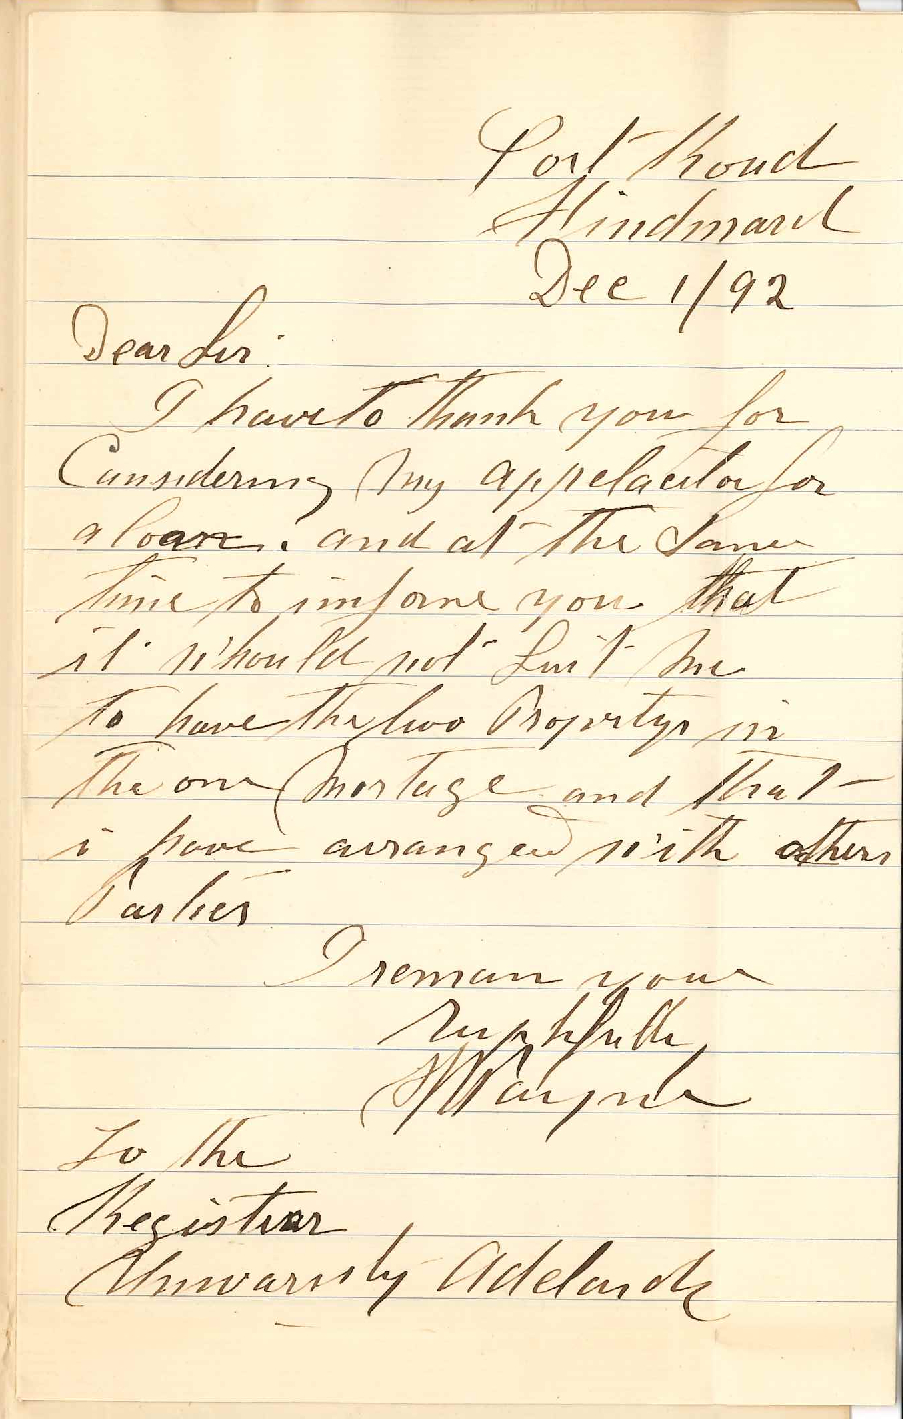 Port Road
Hindmarsh
Dec 1/92
Dear Sir:
I have to thank you for
Considering my applacation for
a loan. and at the same
time to imforme you that
it whould not suit me
to have the two Propertys in
the one Mortage and that
i have arranged with others
Parties
I reman your
H Payne
To the
Registrar
Unwarsity Adelaide